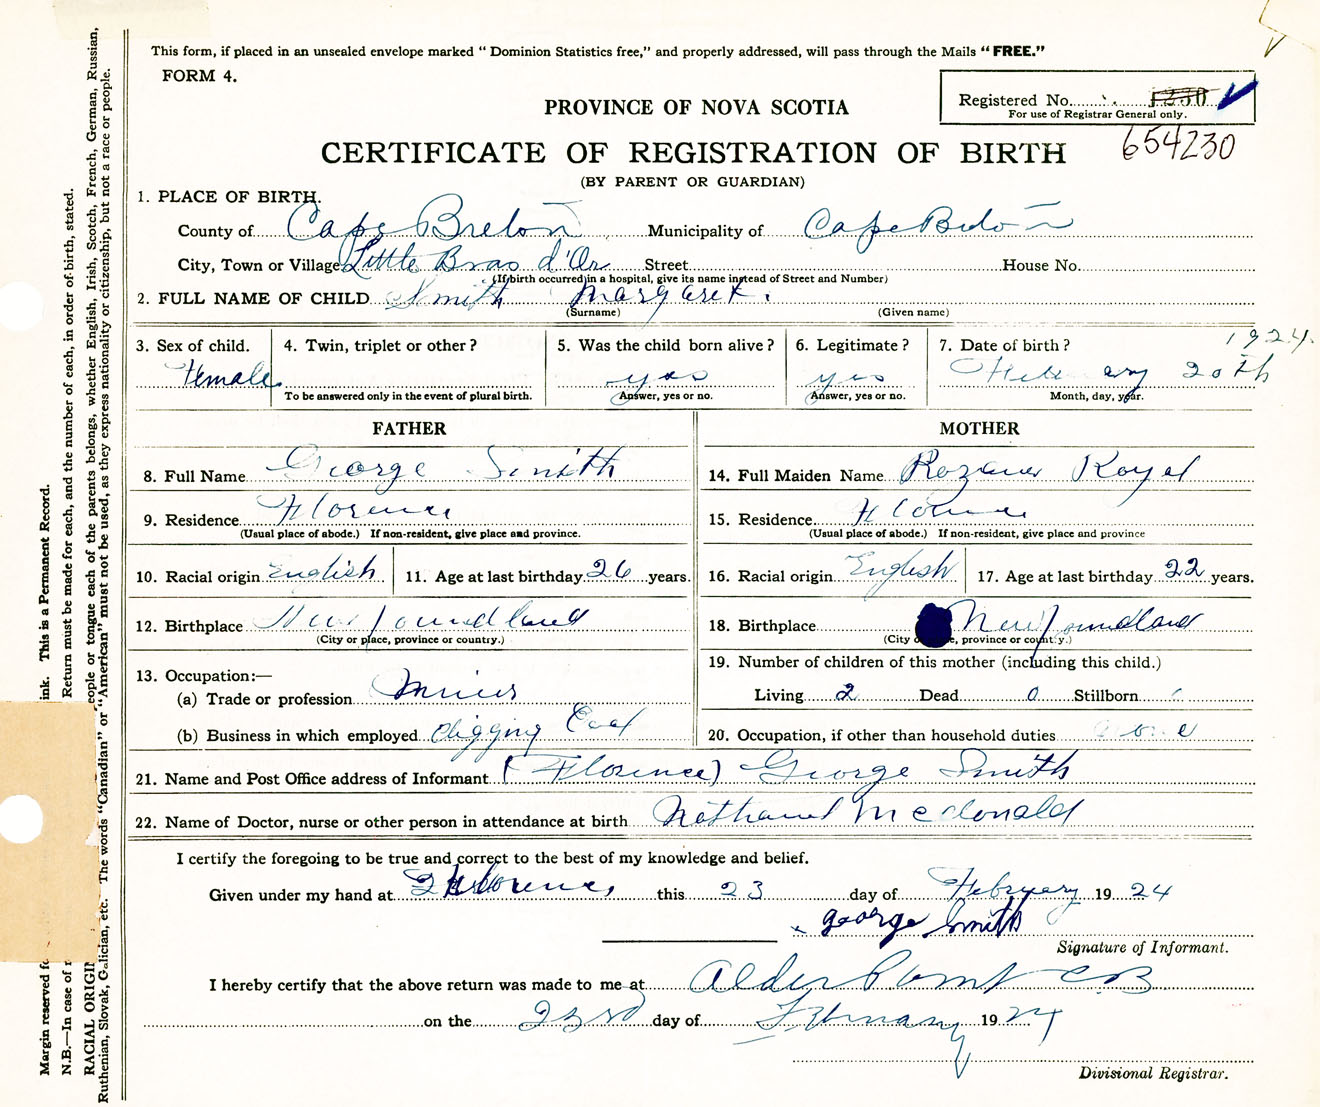 This form, if placed in an unsealed envelope marked " Dominion Statistics free," and properly addressed, will pass through the Mails " FREE."
FORM 4.
Registered No. 1230
For use of Registrar General only.
654230
PROVINCE OF NOVA SCOTIA
CERTIFICATE OF REGISTRATION OF BIRTH
(BY PARENT OR GUARDIAN)
1. PLACE OF BIRTH.
County of Cape Breton Municipality of Cape Breton
City, Town or Village Little Bras d'Or Street House No.
(If birth occurred in a hospital, give its name instead of Street and Number)
2. FULL NAME OF CHILD Smith Margaret.
(Surname) (Given name)
3. Sex of child. 4. Twin, triplet or other? 5. Was the child born alive? 6. Legitimate? 7. Date of birth? 1924.
Female yes yes February 20th
To be answered only in the event of plural birth. Answer, yes or no. Answer, yes or no. Month, day, year.
FATHER MOTHER
8. Full Name George Smith 14. Full Maiden Name
9. Residence Florence 15. Residence Florence
(Usual place of abode.) If non-resident, give place and province. (Usual place of abode) If non-resident, give place and province
10. Racial origin English 11. Age at last birthday 26 years. 16. Racial origin English 17. Age at last birthday 22 years.
12. Birthplace Newfoundland 18. Birthplace Newfoundland
(City or place, province or country.) (City province or country.)
13. Occupation:— 19. Number of children of this mother (including this child.)
(a) Trade or profession Living 2 Dead 0 Stillborn
(b) Business in which employed digging Coal 20. Occupation, if other than household duties none
21. Name and Post Office address of Informant (Florence) George Smith
22. Name of Doctor, nurse or other person in attendance at birth Nathanel McDonald
I certify the foregoing to be true and correct to the best of my knowledge and belief.
Given under my hand at Florence this 23 day of February 1924
george Smith
Signature of Informant.
I hereby certify that the above return was made to me at Alder Point CB
on the 23rd day of February 1924
Divisional Registrar.
Margin reserved ink. This is a Permanent Record.
N.B.—In case of Return must be made for each, and the number of each, in order of birth, stated.
RACIAL ORIGIN people or tongue each of the parents belongs, whether English, Irish, Scotch, French, German, Russian,
Ruthenian, Slovak, Galician, etc. The words "Canadian" or "American" must not be used, as they express nationality or citizenship, but not a race or people.